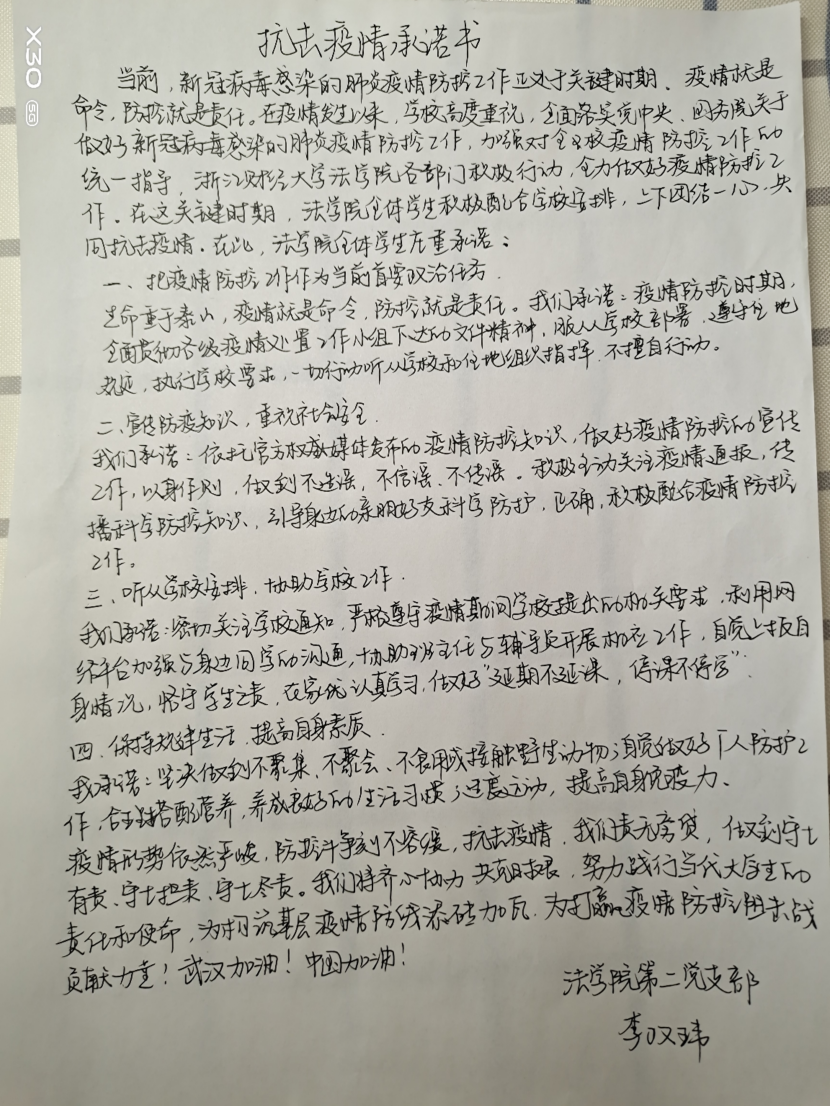 X30 5G
抗击疫情承诺书
当前，新冠病毒感染的肺炎疫情防控工作正处于关键时期、疫情就是
命令，防控就是责任。在疫情发生以来，学校高度重视，全面落实党中央、国务院关于
做好新冠病毒感染的肺炎疫情防控工作，加强对全校疫情防控工作的
统一指导，浙江财经大学法学院各部门积极行动，全力做好疫情防控工
作。在这关键时期，法学院全体学生积极配合学校安排，上下团结一心，共
同抗击疫情。在此，法学院全体学生庄重承诺：
一、把疫情防控工作作为当前首要政治任务.
生命重于泰山，疫情就是命令，防控就是责任。我们承诺：疫情防控时期，
全面贯彻各级疫情处置工作小组下达的文件精神，服从学校部署，遵守住地
规定，执行学校要求，一切行动听从学校和住地组织指挥，不擅自行动。
二、宣传防疫知识，重视社会安全.
我们承诺：依托官方权威媒体发布的疫情防控知识，做好疫情防控的宣传
工作，以身作则，做到不造谣，不信谣、不传谣。积极主动关注疫情通报，传
播科学防控知识，引导身边的亲朋好友科学防护，正确，积极配合疫情防控
工作。
三、听从学校安排，协助学校工作.
我们承诺：密切关注学校通知，严格遵守疫情期间学校提出的相关要求，利用网
络平台加强与身边同学的沟通，协助班主任与辅导员开展相应工作，自觉上报自
身情况，恪守学生之责，在家统认真学习，做好“延期不延课，停课不停学”.
四、保持规律生活，提高自身素质.
我承诺：坚决做到不聚集、不聚会、不食用或接触野生动物；自觉做好个人防护工
作，合理搭配营养，养成良好的生活习惯；适度运动，提高自身免疫力、
疫情形势依然严峻，防控斗争刻不容缓，抗击疫情，我们责无旁贷，做到守土
有责、守土担责、守土尽责。我们将齐心协力 共克时艰，努力践行当代大学生的
责任和使命，为构筑基层疫情防线添砖加瓦，为打赢疫情防控阻击战
贡献力量！武汉加油！中国加油！
法学院第二党支部
李玮